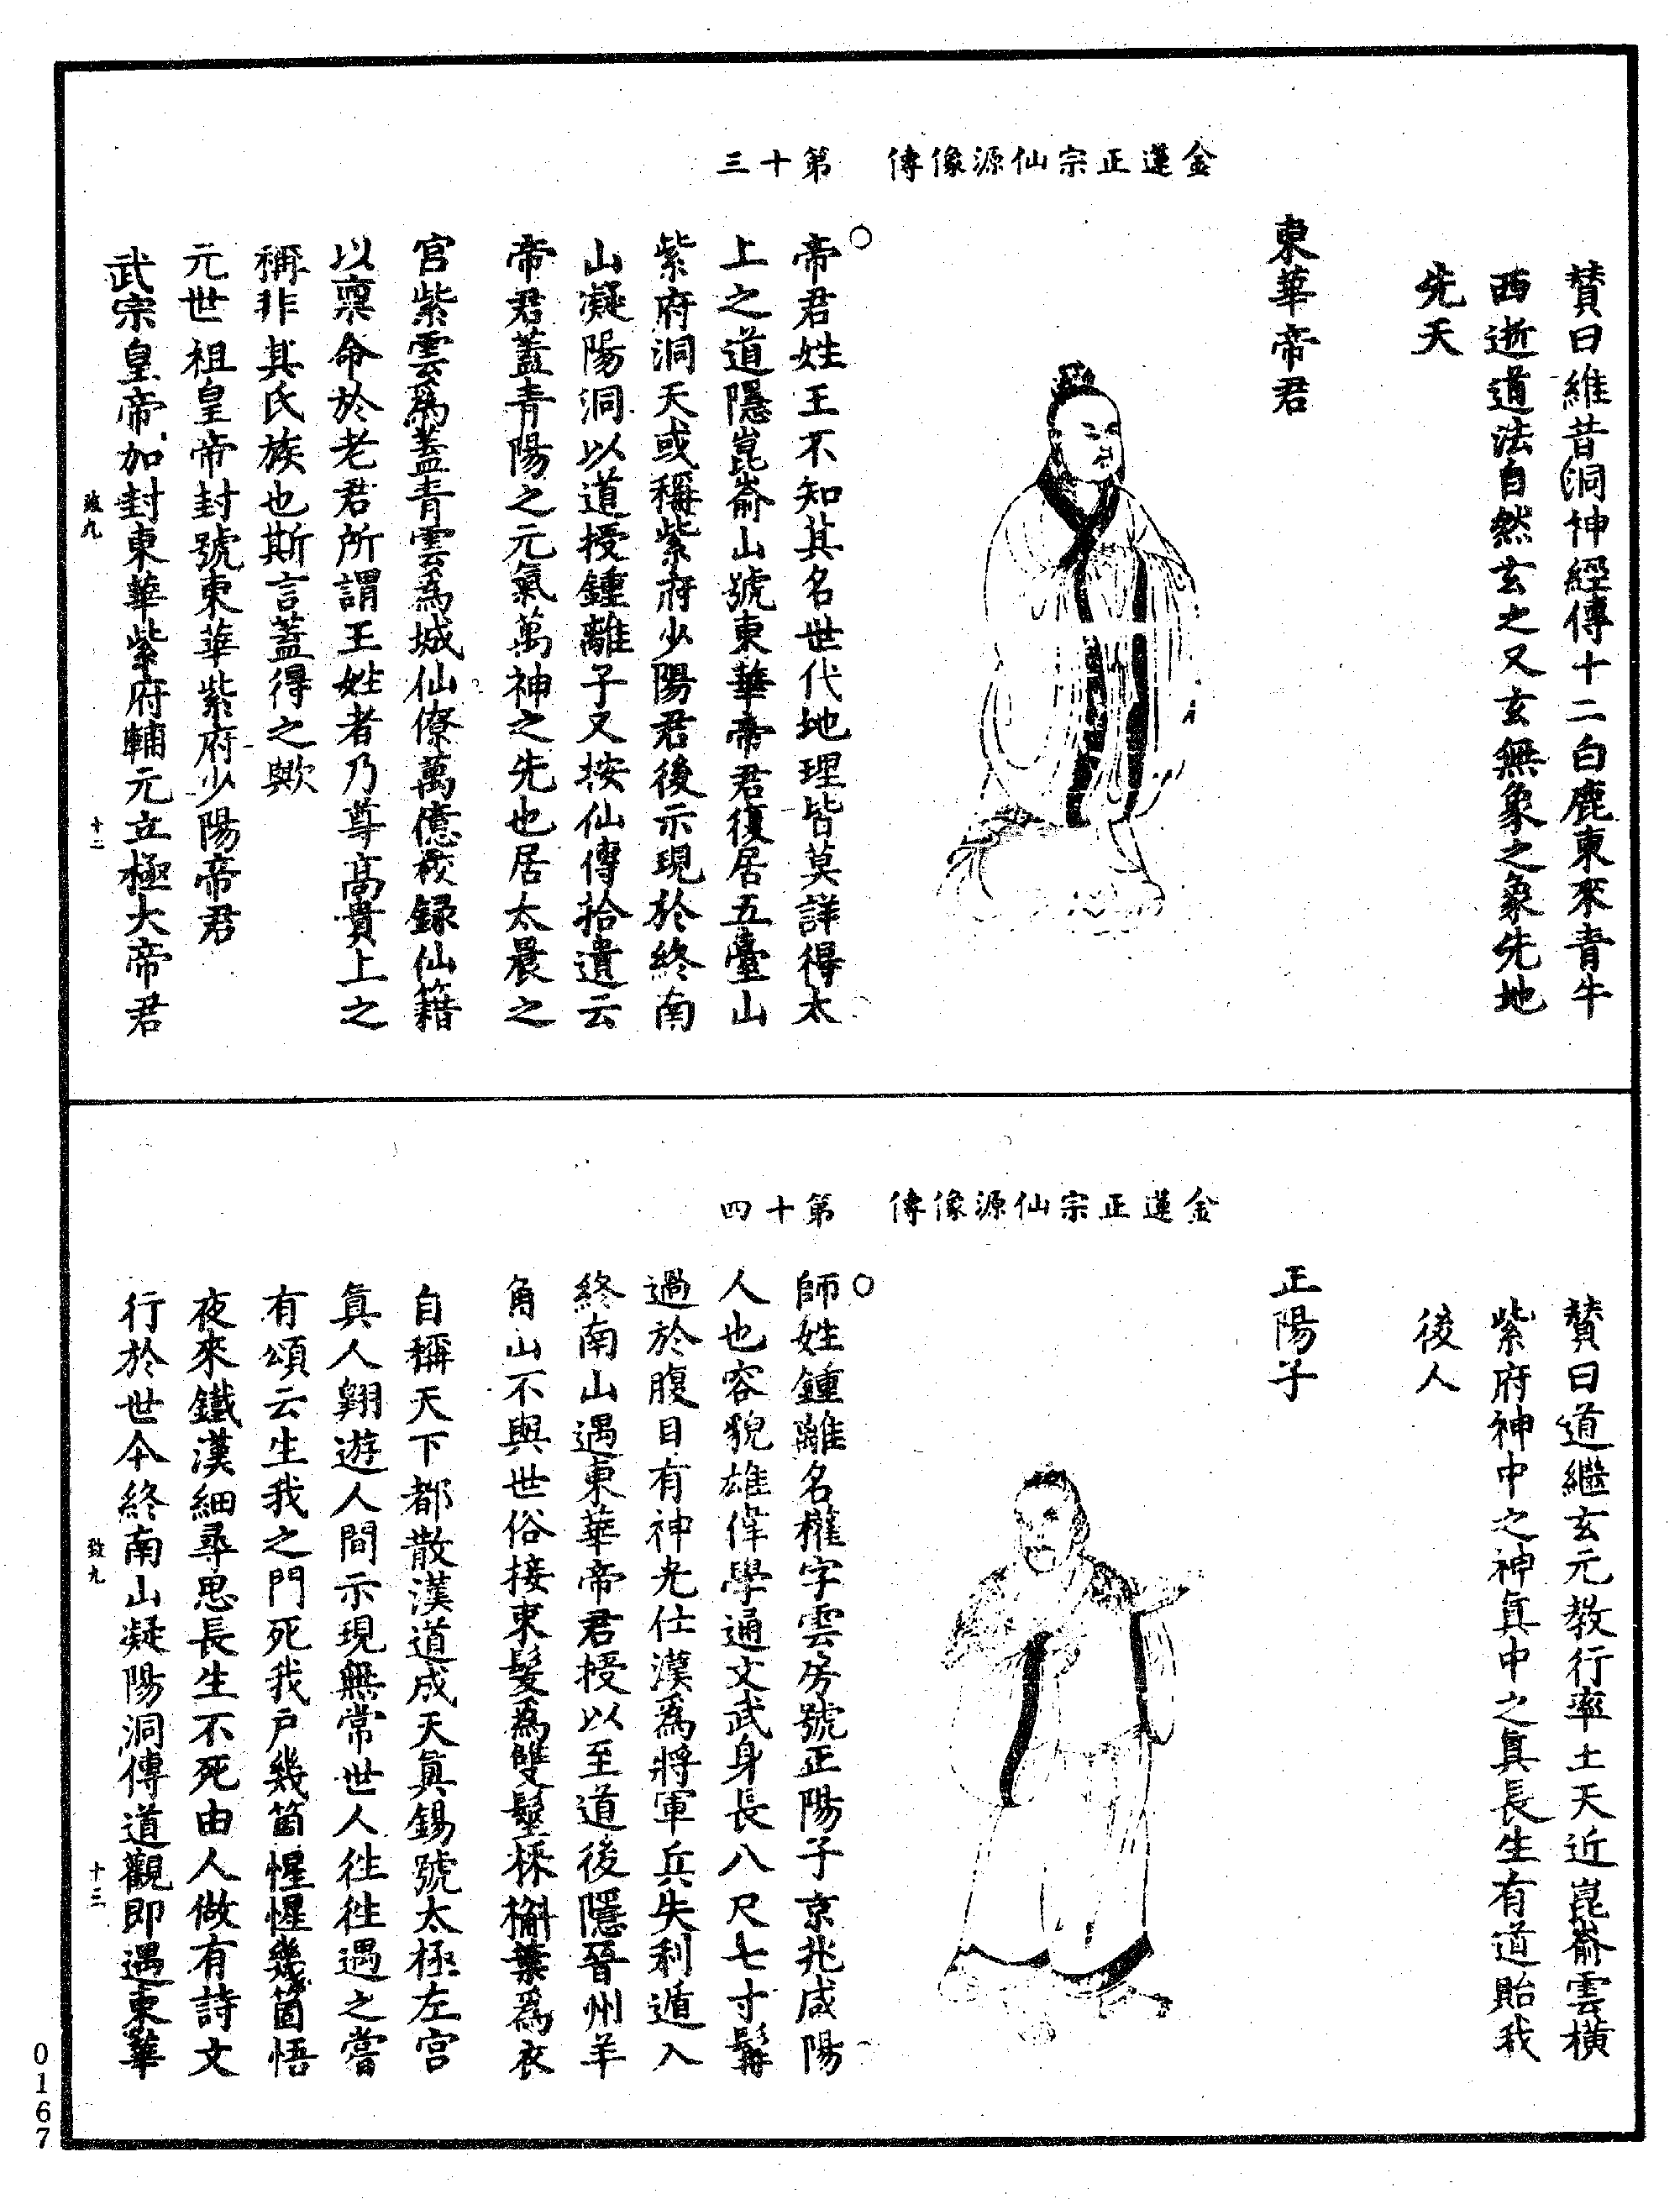 金蓮正宗仙源像傳　第十三
贊曰維昔洞神經傳十二白鹿東來青牛
西逝道法自然玄之又玄無象之象先地
先天
東華帝君
○帝君姓王不知其名世代地理皆莫詳得太
上之道隱崑崙山號東華帝君復居五臺山
紫府洞天或稱紫府少陽君後示現於終南
山凝陽洞以道授鍾離子又按仙傳拾遺云
帝君蓋青陽之元氣萬神之先也居太晨之
宮紫雲爲蓋青雲爲城仙僚萬億校録仙籍
以稟命於老君所謂王姓者乃尊高貴上之
稱非其氏族也斯言蓋得之歟
元世祖皇帝封號東華紫府少陽帝君
武宗皇帝加封東華紫府輔元立極大帝君
致九　十二
金蓮正宗仙源像傳　第十四
贊曰道繼玄元教行率土天近崑崙雲橫
紫府神中之神眞中之眞長生有道貽我
後人
正陽子
○師姓鍾離名權字雲房號正陽子京兆咸陽
人也容貌雄偉學通文武身長八尺七寸髯
過於腹目有神光仕漢爲將軍兵失利遁入
終南山遇東華帝君授以至道後隱晉州羊
角山不與世俗接束髮爲雙髻採槲葉爲衣
自稱天下都散漢道成天眞錫號太極左宮
眞人翺遊人間示現無常世人徃徃遇之嘗
有頌云生我之門死我戶幾箇惺惺幾箇悟
夜來鐵漢細尋思長生不死由人做有詩文
行於世今終南山凝陽洞傳道觀即遇東華
致九　十三
0167